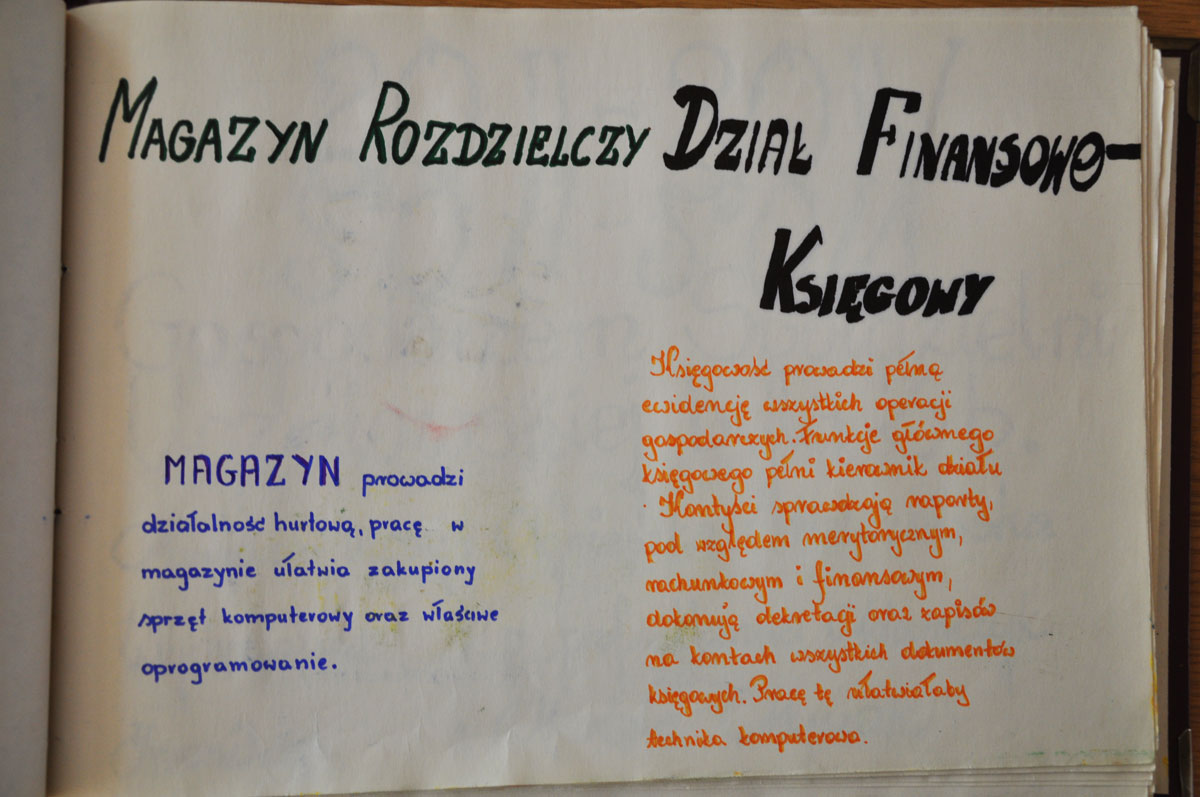 MAGAZYN ROZDZIELCZY
MAGAZYN prowadzi
działalność hurtową, pracę w
magazynie ułatwia zakupiony
sprzęt komputerowy oraz właściwe
oprogramowanie.
DZIAŁ FINANSOWO-
KSIĘGOWY
Księgowość prowadzi pełną
ewidencję wszystkich operacji
gospodarczych. Funkcje głównego
księgowego pełni kierownik działu
. Kontyści sprawdzają raporty,
pod względem merytorycznym,
rachunkowym i finansowym,
dokonują dekretacji oraz zapisów
na kontach wszystkich dokumentów
księgowych. Pracę tę ułatwiałaby
technika komputerowa.